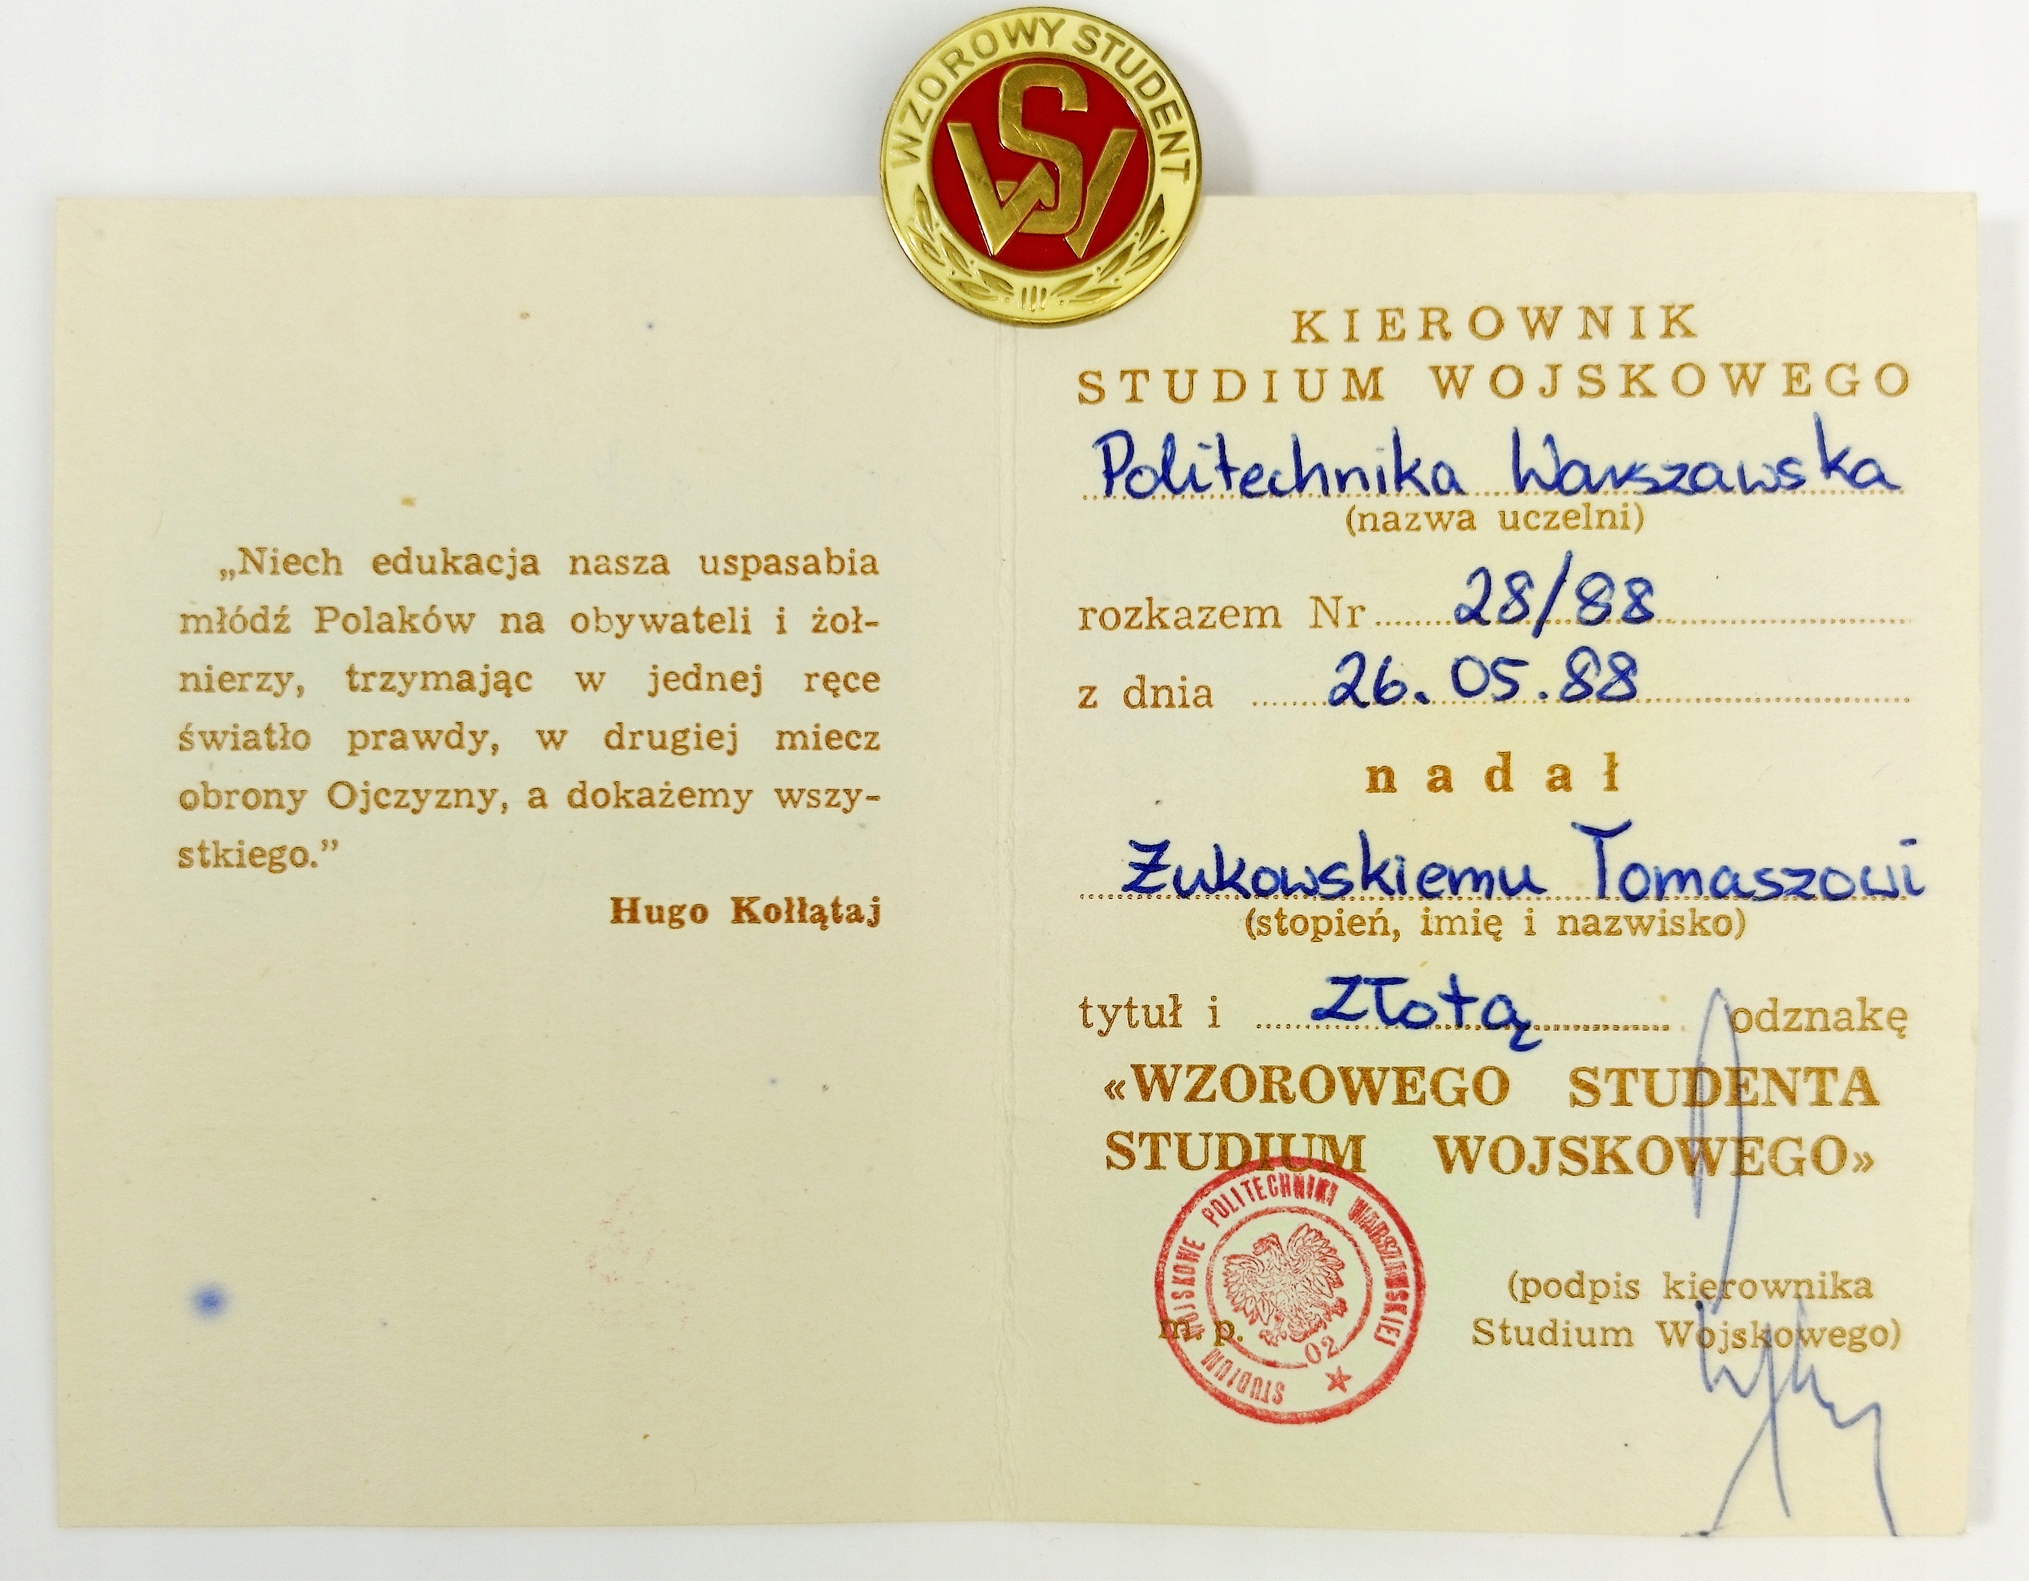 WZOROWY STUDENT
SW
III
„Niech edukacja nasza uspasabia
młódź Polaków na obywateli i żoł-
nierzy, trzymając w jednej ręce
światło prawdy, w drugiej miecz
obrony Ojczyzny, a dokażemy wszy-
stkiego.”
Hugo Kołłątaj
KIEROWNIK
STUDIUM WOJSKOWEGO
Politechnika Warszawska
(nazwa uczelni)
rozkazem Nr 28/88
z dnia 26.05.88
nadał
Żukowskiemu Tomaszowi
(stopień, imię i nazwisko)
tytuł i złotą odznakę
«WZOROWEGO STUDENTA
STUDIUM WOJSKOWEGO»
STUDIUM WOJSKOWE POLITECHNIKI WARSZAWSKIEJ
02
m. p.
(podpis kierownika
Studium Wojskowego)